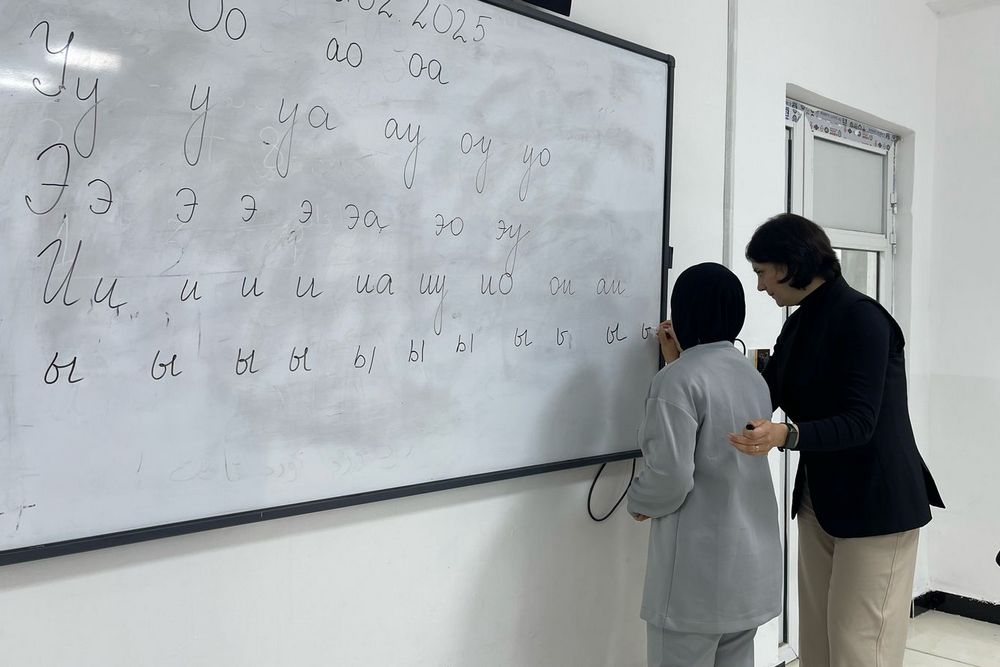 02.2025
Оо ао оа
Уу у уа ау оу уо
Ээ э э э эа эо эу
Ии и и и иа иу ио ои аи
ы ы ы ы ы ы ы ы ы ы